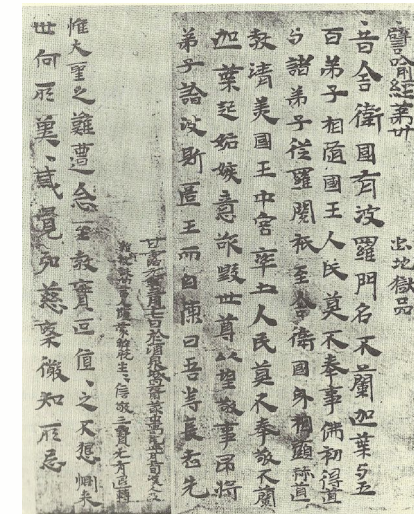 譬喻經第卅 出地獄品
昔舍衛國有波羅門名不蘭迦葉与五
百弟子相隨國王人民莫不奉事佛初得道
与諸弟子從羅閱祇至舍衛國身相顯赫道
教清美國王中宮率土人民莫不奉敬不蘭
迦葉起姤嫉意欲毀世尊以望敬事即將
弟子諂波斯匿王而自陳曰吾等長老先
甘露元年三月十七日於酒泉城內齋叢中寫訖此月上旬漢人及
生生信敬三寶无有退轉
惟大聖之難遭念至教實叵值
世何所感覺知所忌